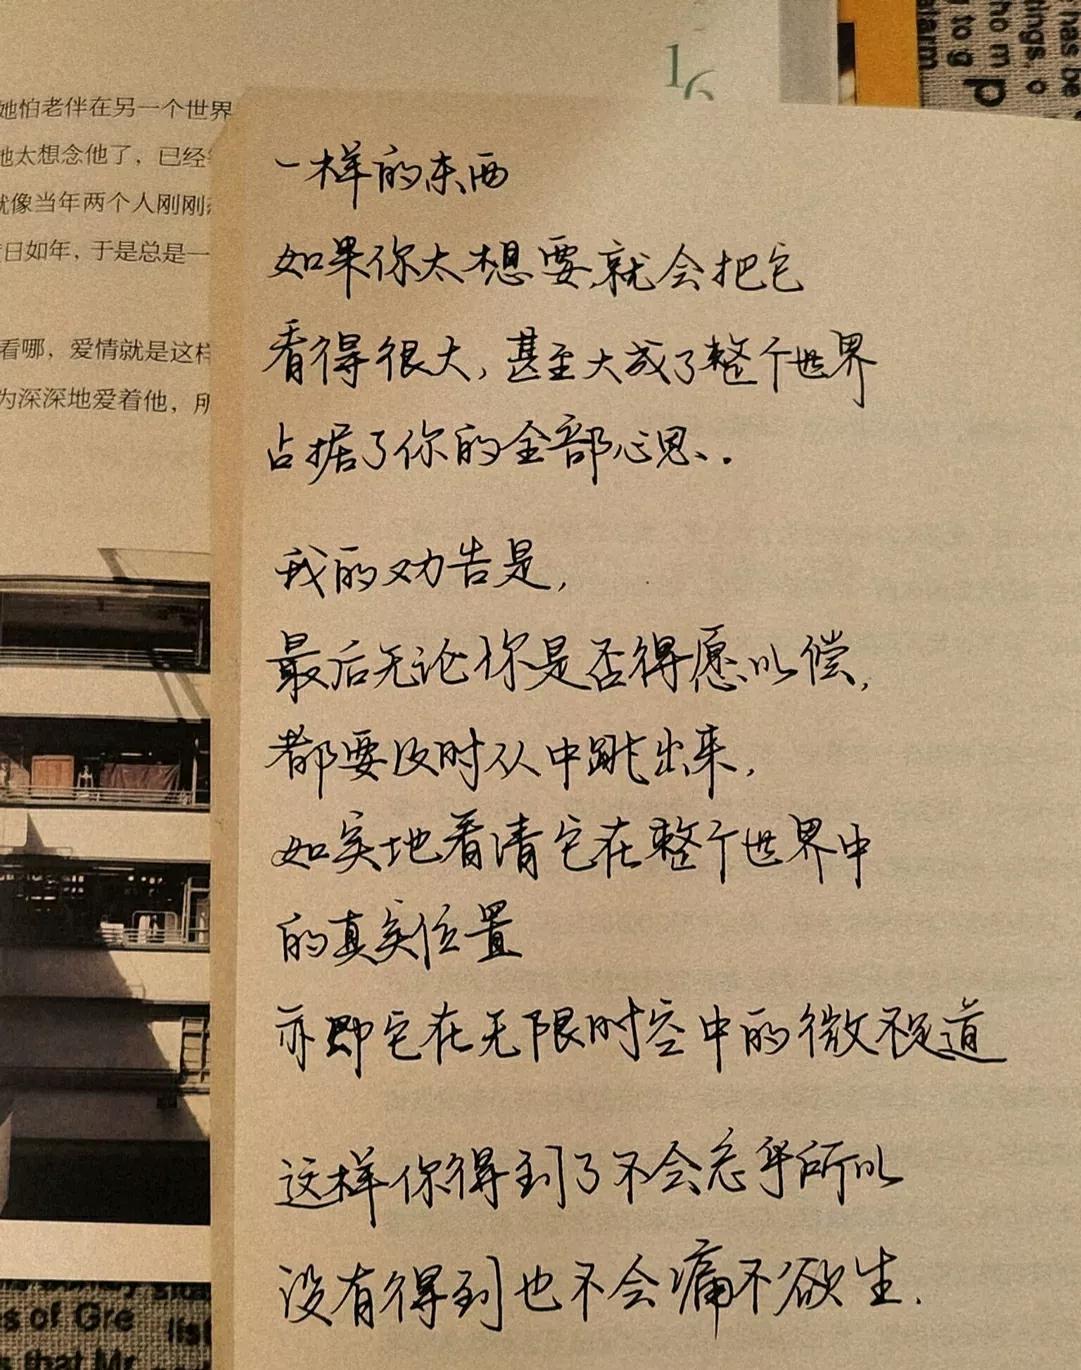 16
她怕老伴在另一个世界
她太想念他了，已经
就像当年两个人刚刚
日如年，于是总是一
看哪，爱情就是这样
为深深地爱着他，所
一样的东西
如果你太想要,就会把它
看得很大,甚至大成了整个世界
占据了你的全部心思..
我的劝告是,
最后无论你是否得愿以偿,
都要及时从中跳出来,
如实地看清它在整个世界中
的真实位置
亦即它在无限时空中的微不足道
这样你得到了不会忘乎所以
没有得到也不会痛不欲生.
has be
tings, o
ho m
y to g
p
alarm
s of Gre
list
s that Mr